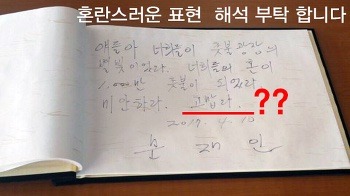 혼란스러운 표현 해석 부탁 합니다
얘들아 너희들이 촛불광장의
별빛이었다. 너희들의 혼이
1,000만 촛불이 되었다.
미안하다. 고맙다.
??
2017. 4. 10
문 재 인